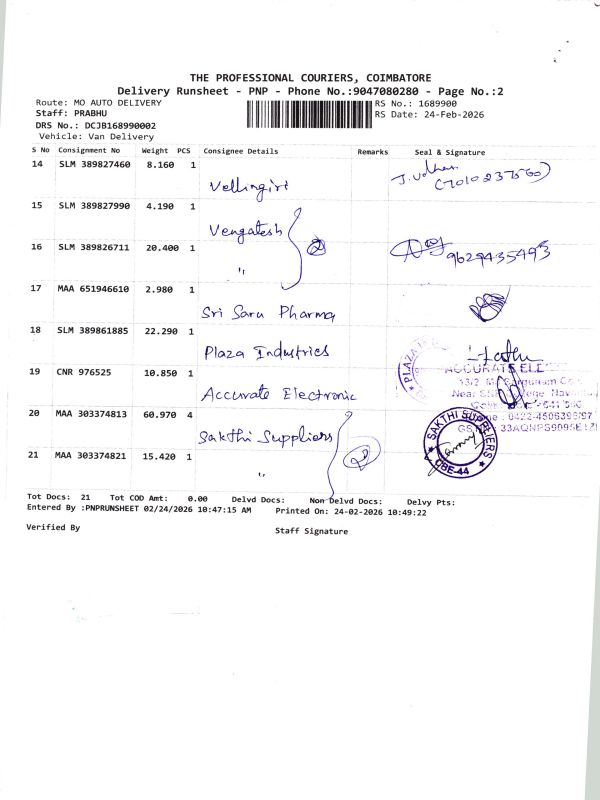 THE PROFESSIONAL COURIERS, COIMBATORE
Delivery Runsheet - PNP - Phone No.:9047080280 - Page No.:2
Route: MO AUTO DELIVERY RS No.: 1689900
Staff: PRABHU RS Date: 24-Feb-2026
DRS No.: DCJB168990002
Vehicle: Van Delivery
S No Consignment No Weight PCS Consignee Details Remarks Seal & Signature
14 SLM 389827460 8.160 1
Vellingiri
15 SLM 389827990 4.190 1
Vengatesh
16 SLM 389826711 20.400 1 9629435493
"
17 MAA 651946610 2.980 1
Sri Saru Pharma
18 SLM 389861885 22.290 1
Plaza Industries
19 CNR 976525 10.850 1 ACCURATE ELE
Accurate Electronic
20 MAA 303374813 60.970 4
Sakthi Suppliers SAKTHI SUPPLIERS CBE-44
21 MAA 303374821 15.420 1
"
Tot Docs: 21 Tot COD Amt: 0.00 Delvd Docs: Non Delvd Docs: Delvy Pts:
Entered By :PNPRUNSHEET 02/24/2026 10:47:15 AM Printed On: 24-02-2026 10:49:22
Verified By Staff Signature